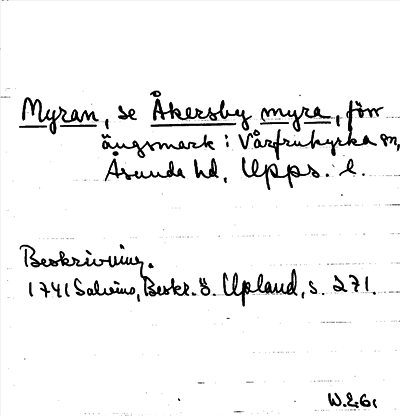 Myran, se Åkersby myra, förr
ängsmark i Vårfrukyrka sn,
Åsunda hd, Upps. l.
Beskrivning.
1741 Salvius, Beskr. ö. Upland, s. 271.
W.E.G.